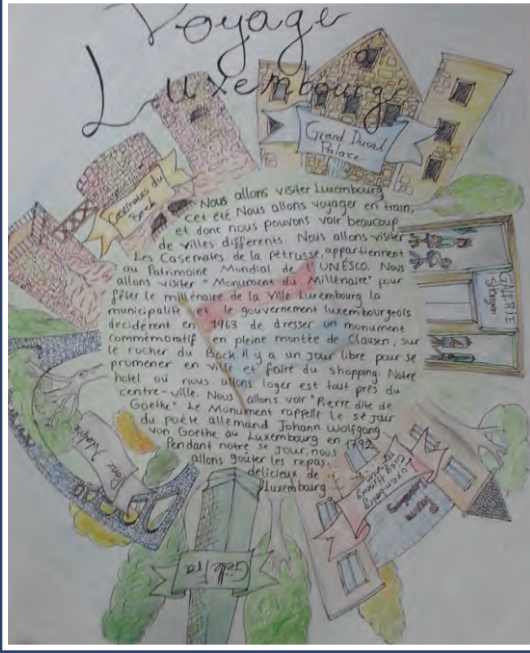 Voyage
à
Luxembourg
Grand Ducal
Palace
Casemates du
Bock
Nous allons visiter Luxembourg
cet été Nous allons voyager en train,
et donc nous pouvons voir beaucoup
de villes differents. Nous allons visiter
Les Casemates de la pétrusse, appartiennent
au Patrimoine Mundial de l'UNESCO. Nous
allons visiter "Monument du Millénaire" pour
fêter le millénaire de la Ville Luxembourg la
municipalité et le gouvernement luxembourgeois
decidérent en 1963 de dresser un monument
commémoratif en pleine montée de Clausen, sur
le rocher du Bock il y a un jour libre pour se
promener en ville et faire du shopping. Notre
hotel où nous allons loger est tout près du
centre-ville. Nous allons voir "Pierre dite de
Goethe" Le Monument rappelle le séjour
du poète allemand Johann Wolfgang
von Goethe au Luxembourg en 1792
Pendant notre séjour, nous
allons goûter les repas
délicieux de
Luxembourg
GALERIE
Luxembourg
City History
Museum
Gëlle Fra